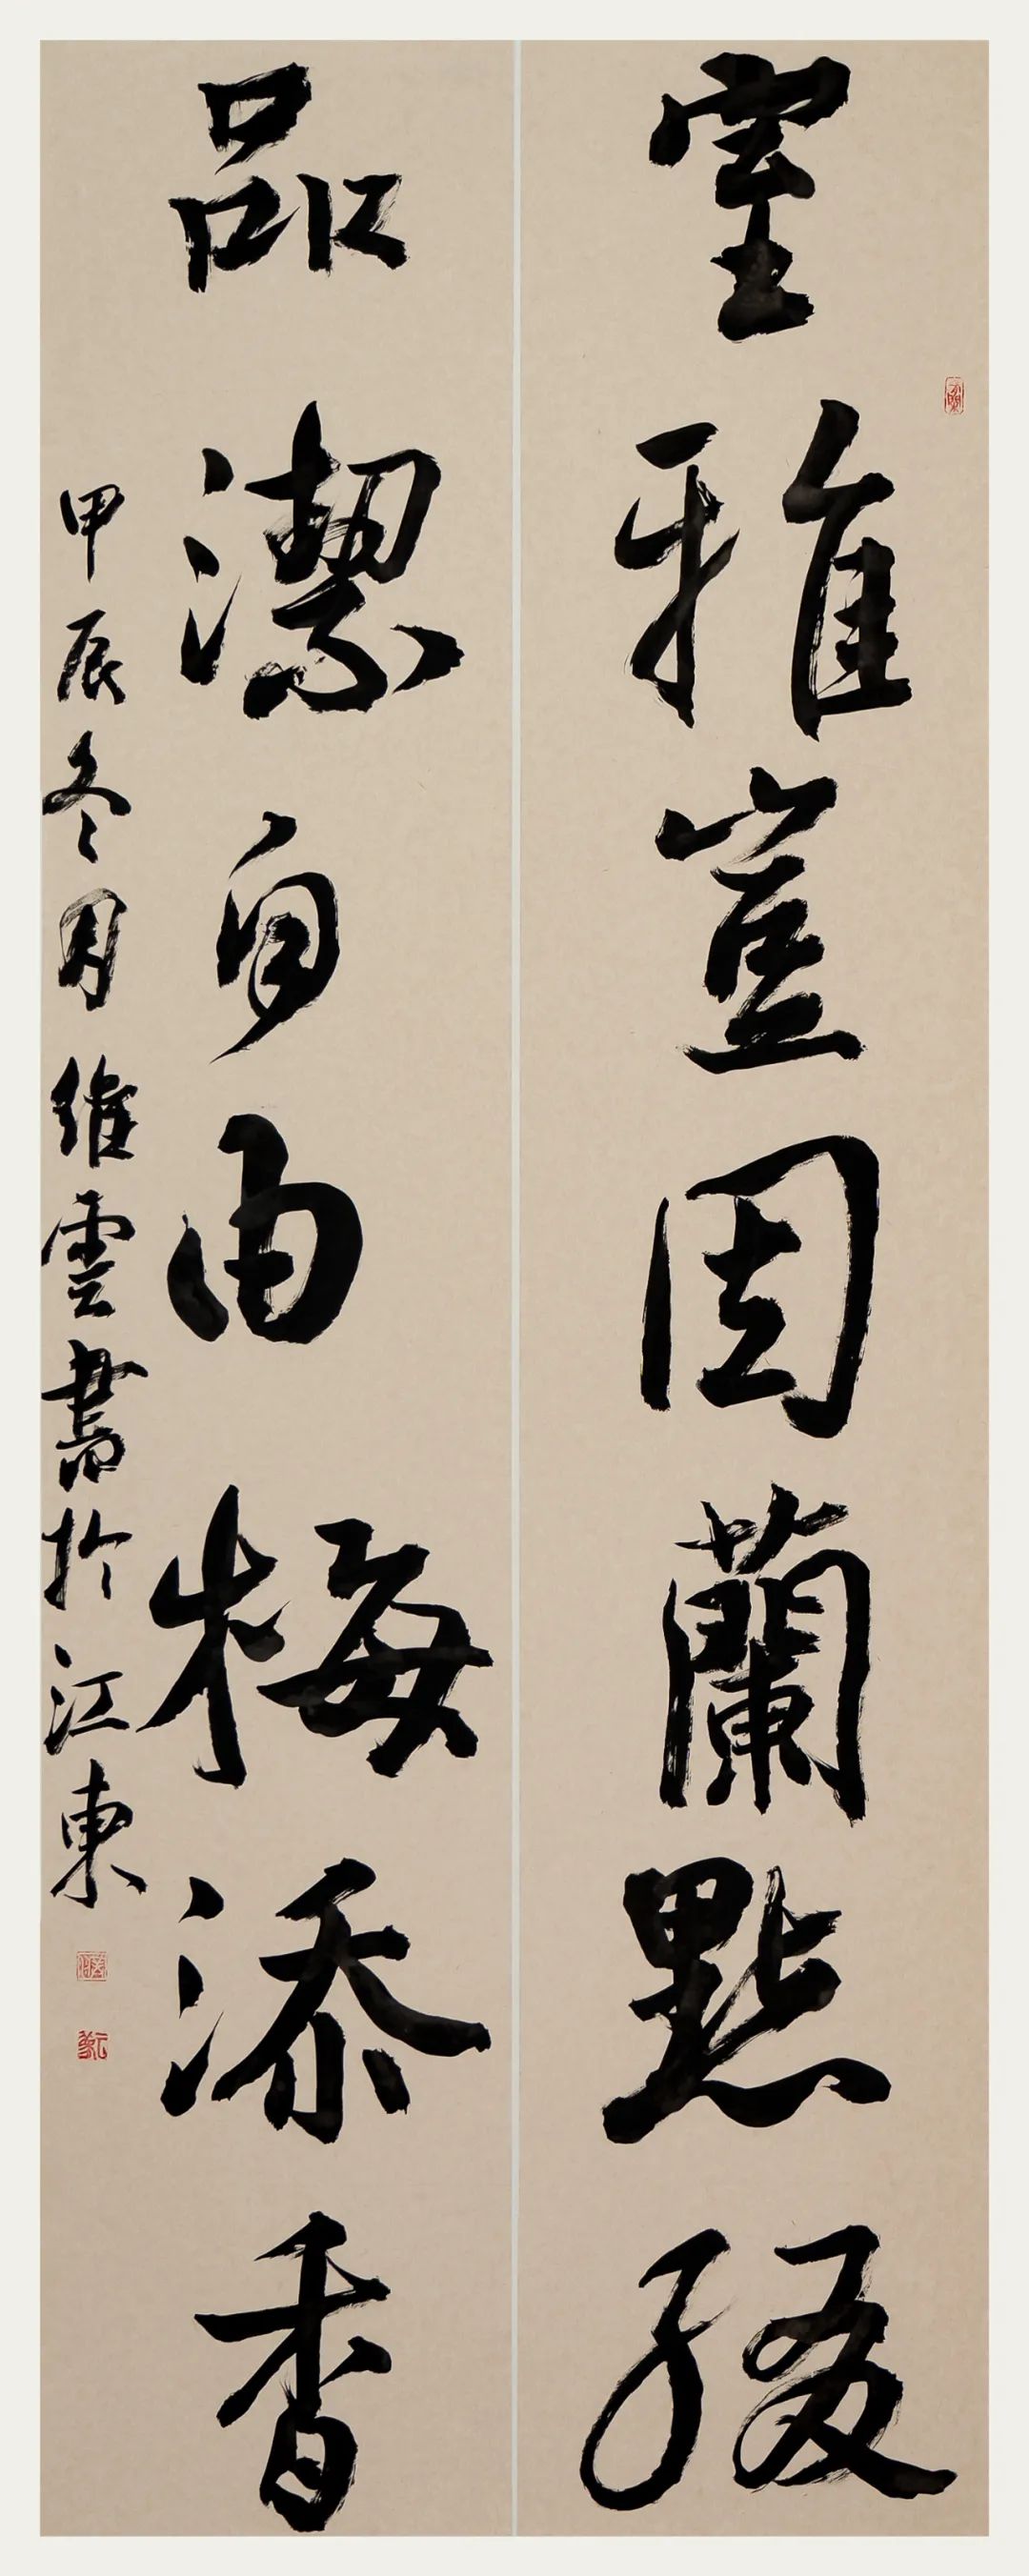 室雅豈因蘭點綴
品潔自由梅添香
甲辰冬月維雲書於江東